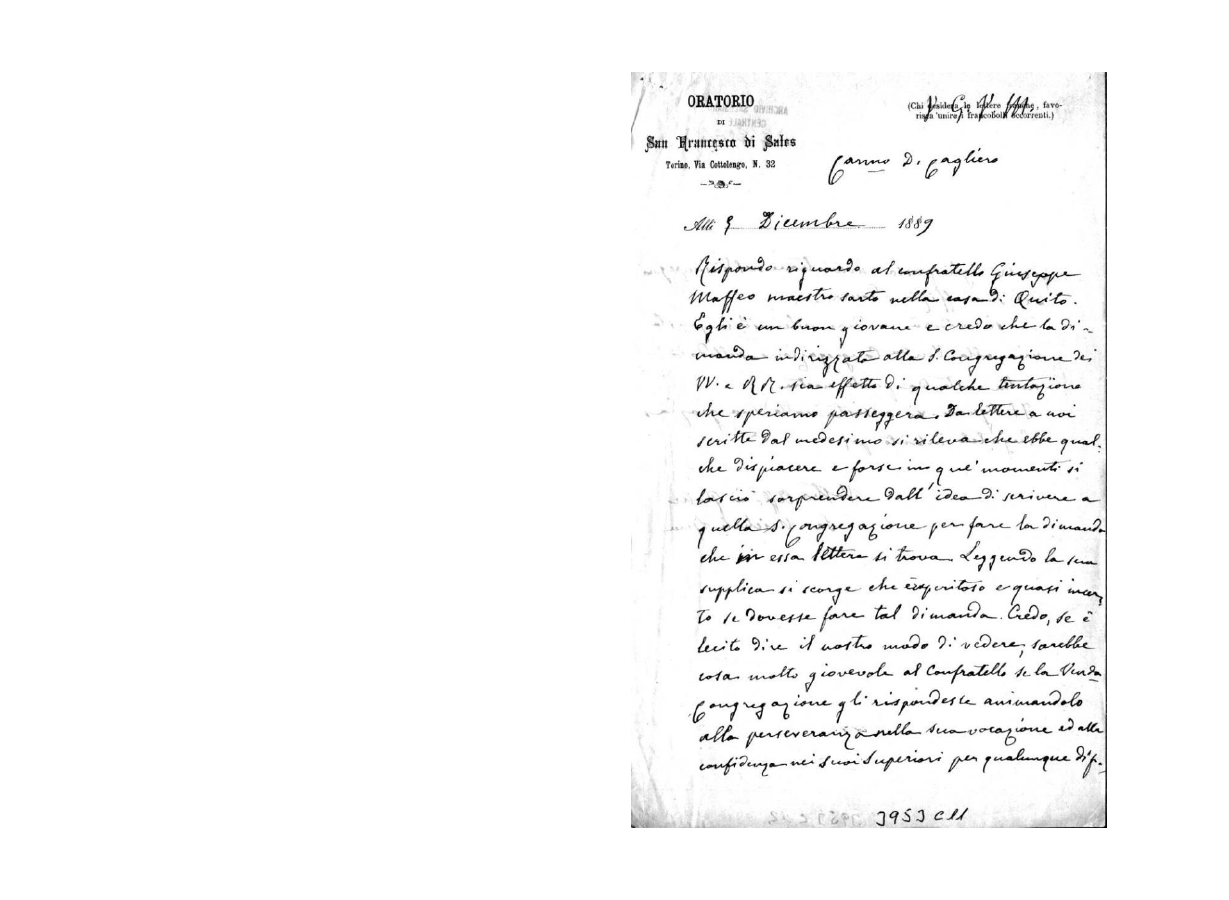 ORATORIO
DI
San Francesco di Sales
Torino, Via Cottolengo, N. 32
(Chi desidera le lettere franche, favo-
risca unire i francobolli occorrenti.)
V. G. M.
Carmo D. Cagliero
Alli 5 Dicembre 1889
Rispondo riguardo al confratello Giuseppe
Maffeo maestro sarto nella casa di Quito.
Egli è un buon giovane e credo che la di-
manda indirizzata alla S. Congregazione dei
VV. e RR. sia effetto di qualche tentazione
che speriamo passeggera. Da lettere a noi
scritte dal medesimo si rileva che ebbe qual-
che dispiacere e forse in que' momenti si
lasciò sorprendere dall'idea di scrivere a
quella S. Congregazione per fare la dimanda
che in essa lettera si trova. Leggendo la sua
supplica si scorge che è esperitoso e quasi incer-
to se dovesse fare tal dimanda. Credo, se è
lecito dire il nostro modo di vedere, sarebbe
cosa molto giovevole al Confratello se la Venda
Congregazione gli rispondesse animandolo
alla perseveranza nella sua vocazione ed alla
confidenza nei suoi Superiori per qualunque dif-
3953 C 11